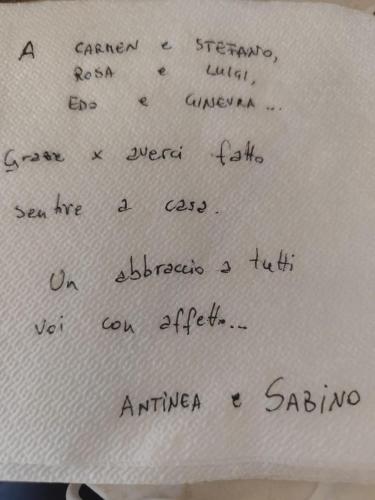 A CARMEN e STEFANO,
ROSA e LUIGI,
EDO e GINEVRA...
Grazie x averci fatto
sentire a casa.
Un abbraccio a tutti
voi con affetto...
ANTINEA e SABINO